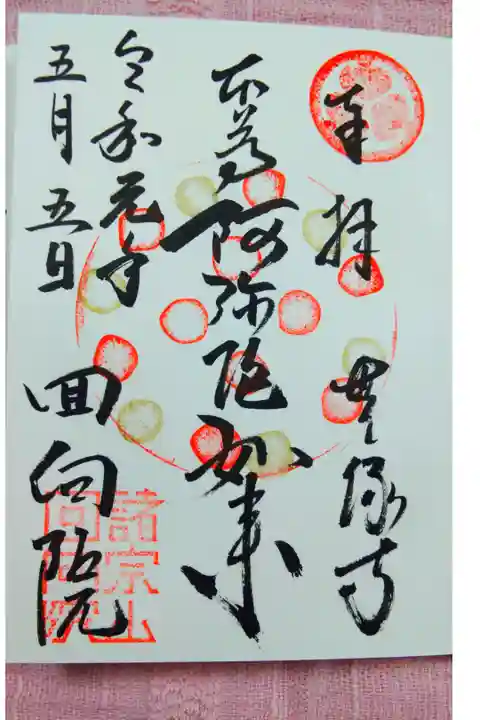 奉拝 無縁寺
本尊阿弥陀如来
令和元年
五月五日 回向院
諸宗山
回向院